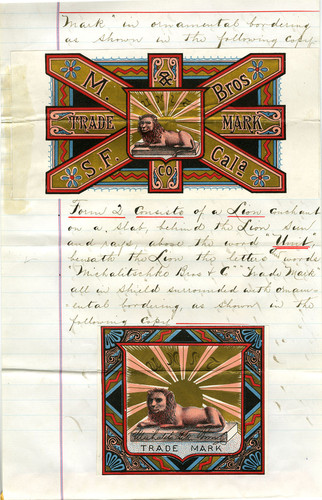 Mark" in ornamental bordering
as shown in the following Copy
M. & Bros
TRADE MARK
S.F. Co Cala
Form 2 Consists of a Lion couchant
on a slab, behind the Lion Sun
and rays, above the word "
beneath the Lion the letters & words
"Michalitschke Bros & C" "Trade Mark"
all in shield surrounded with ornam-
ental bordering, as shown in the
following Copy
TRADE MARK